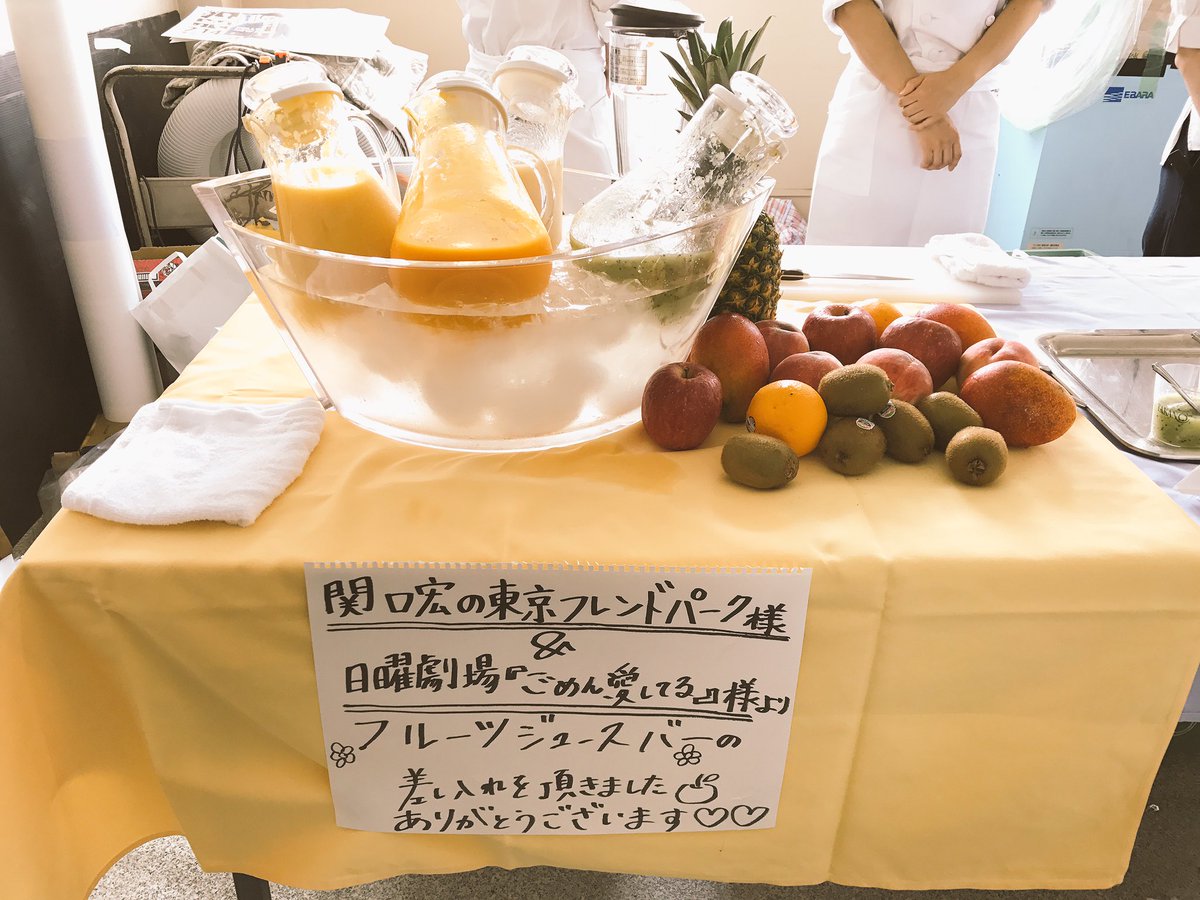 EBARA
関口宏の東京フレンドパーク様
&
日曜劇場『ごめん、愛してる』様より
フルーツジュースバーの
差し入れを頂きました
ありがとうございます♡♡